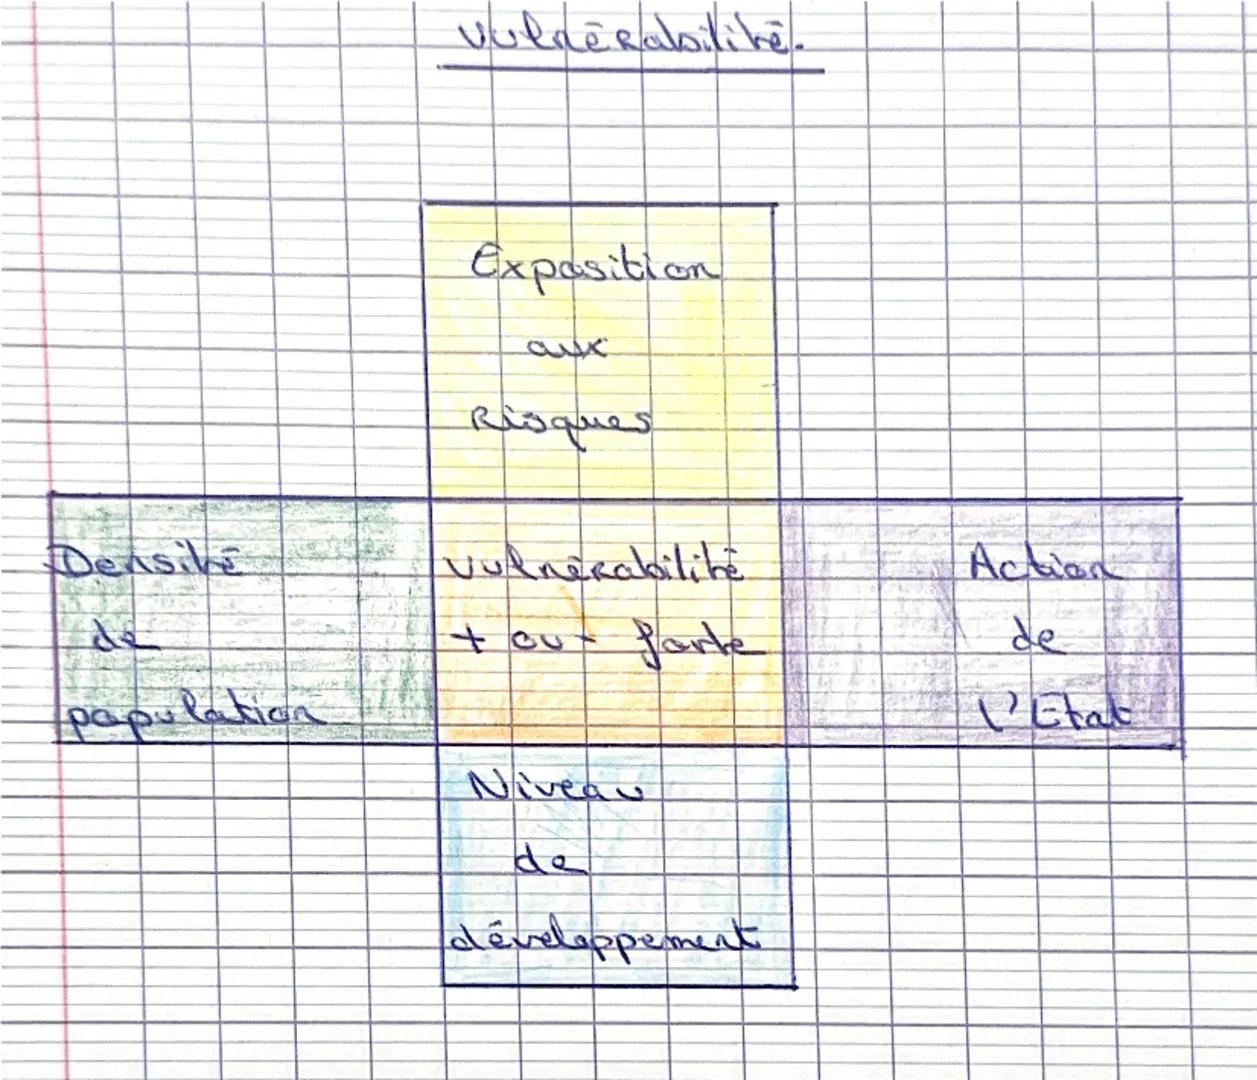 Vulnérabilité.
Exposition
aux
Risques
Densité
de
population
Vulnérabilité
+ ou - forte
Action
de
l'Etat
Niveau
de
développement